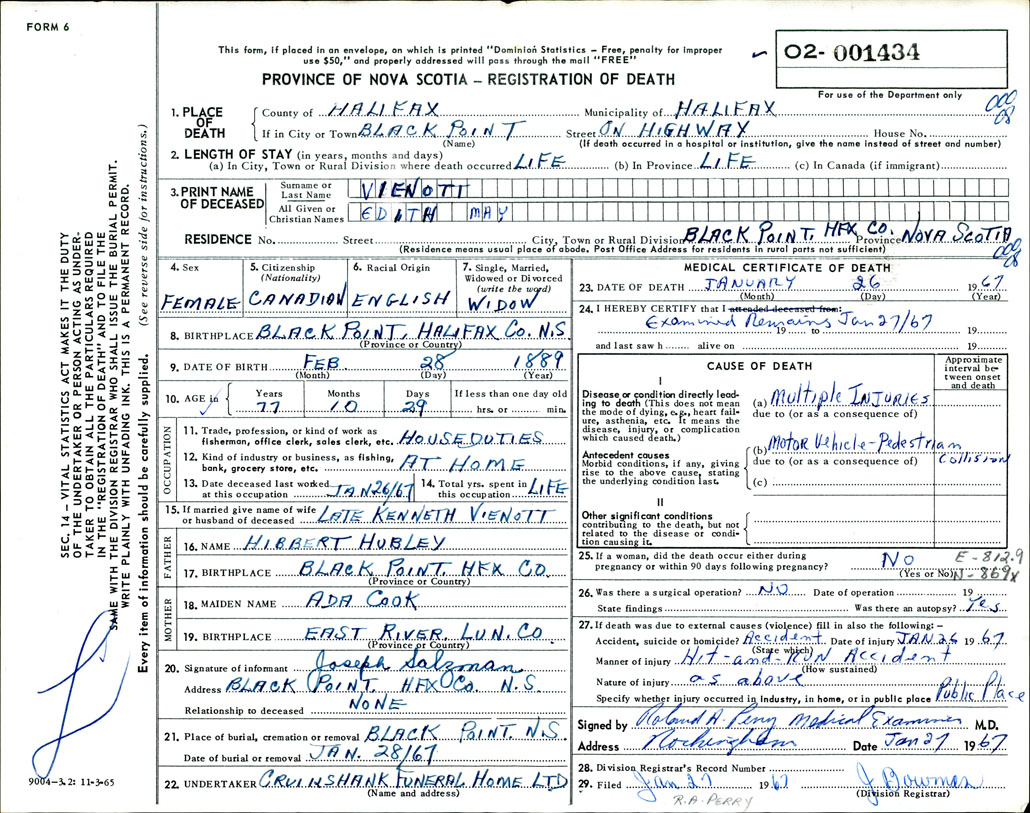 FORM 6
This form, if placed in an envelope, on which is printed "Dominion Statistics – Free, penalty for improper
use $50," and properly addressed will pass through the mail "FREE"
PROVINCE OF NOVA SCOTIA – REGISTRATION OF DEATH
02- 001434
For use of the Department only
000
08
1. PLACE OF DEATH
County of HALIFAX Municipality of HALIFAX
If in City or Town BLACK POINT Street ON HIGHWAY House No.
(Name) (If death occurred in a hospital or institution, give the name instead of street and number)
2. LENGTH OF STAY (in years, months and days)
(a) In City, Town or Rural Division where death occurred LIFE (b) In Province LIFE (c) In Canada (if immigrant)
3. PRINT NAME OF DECEASED
Surname or Last Name VIENOTT
All Given or Christian Names EDITH MAY
RESIDENCE No. Street City, Town or Rural Division BLACK POINT. HFX CO. Province NOVA SCOTIA
(Residence means usual place of abode. Post Office Address for residents in rural parts not sufficient)
000
08
4. Sex FEMALE
5. Citizenship (Nationality) CANADION
6. Racial Origin ENGLISH
7. Single, Married, Widowed or Divorced (write the word) WIDOW
8. BIRTHPLACE BLACK POINT, HALIFAX CO. N.S.
(Province or Country)
9. DATE OF BIRTH FEB 28 1889
(Month) (Day) (Year)
10. AGE in Years Months Days If less than one day old
77 10 29 hrs. or min.
OCCUPATION
11. Trade, profession, or kind of work as
fisherman, office clerk, sales clerk, etc. HOUSEDUTIES
12. Kind of industry or business, as fishing,
bank, grocery store, etc. AT HOME
13. Date deceased last worked
at this occupation JAN 26/67
14. Total yrs. spent in
this occupation LIFE
15. If married give name of wife
or husband of deceased LATE KENNETH VIENOTT
FATHER
16. NAME HIBBERT HUBLEY
17. BIRTHPLACE BLACK POINT. HFX CO.
(Province or Country)
MOTHER
18. MAIDEN NAME ADA COOK
19. BIRTHPLACE EAST RIVER. LUN. CO.
(Province or Country)
20. Signature of informant Joseph Salzman
Address BLACK POINT. HFX CO. N.S.
Relationship to deceased NONE
21. Place of burial, cremation or removal BLACK POINT. N.S.
Date of burial or removal JAN. 28/67
22. UNDERTAKER CRUINSHANK FUNERAL HOME LTD
(Name and address)
MEDICAL CERTIFICATE OF DEATH
23. DATE OF DEATH JANUARY 26 1967
(Month) (Day) (Year)
24. I HEREBY CERTIFY that I attended deceased from:
Examined Remains Jan 27/67
19 to 19
and last saw h alive on 19
CAUSE OF DEATH
Approximate interval between onset and death
I
Disease or condition directly leading to death (This does not mean
the mode of dying, e.g., heart failure, asthenia, etc. It means the
disease, injury, or complication
which caused death.)
(a) Multiple INJURIES
due to (or as a consequence of)
Antecedent causes
Morbid conditions, if any, giving
rise to the above cause, stating
the underlying condition last.
(b) Motor Vehicle-Pedestrian
due to (or as a consequence of) Collision
(c)
II
Other significant conditions
contributing to the death, but not
related to the disease or condition causing it.
25. If a woman, did the death occur either during
pregnancy or within 90 days following pregnancy? NO
(Yes or No)
E-812.9
N-869x
26. Was there a surgical operation? NO Date of operation 19
State findings Was there an autopsy? Yes
27. If death was due to external causes (violence) fill in also the following: –
Accident, suicide or homicide? Accident Date of injury JAN 26 1967
(State which)
Manner of injury Hit-and-RUN Accident
(How sustained)
Nature of injury as above
Specify whether injury occurred in Industry, in home, or in public place Public Place
Signed by Roland A. Perry Medical Examiner M.D.
Address Rockingham Date Jan 27 1967
28. Division Registrar's Record Number
29. Filed Jan 27 1967 J Bowman
(Division Registrar)
R.A. PERRY
SEC. 14 – VITAL STATISTICS ACT MAKES IT THE DUTY
OF THE UNDERTAKER OR PERSON ACTING AS UNDER-
TAKER TO OBTAIN ALL THE PARTICULARS REQUIRED
IN THE "REGISTRATION OF DEATH" AND TO FILE THE
SAME WITH THE DIVISION REGISTRAR WHO SHALL ISSUE THE BURIAL PERMIT.
WRITE PLAINLY WITH UNFADING INK. THIS IS A PERMANENT RECORD.
Every item of information should be carefully supplied. (See reverse side for instructions.)
9004-3.2: 11-3-65